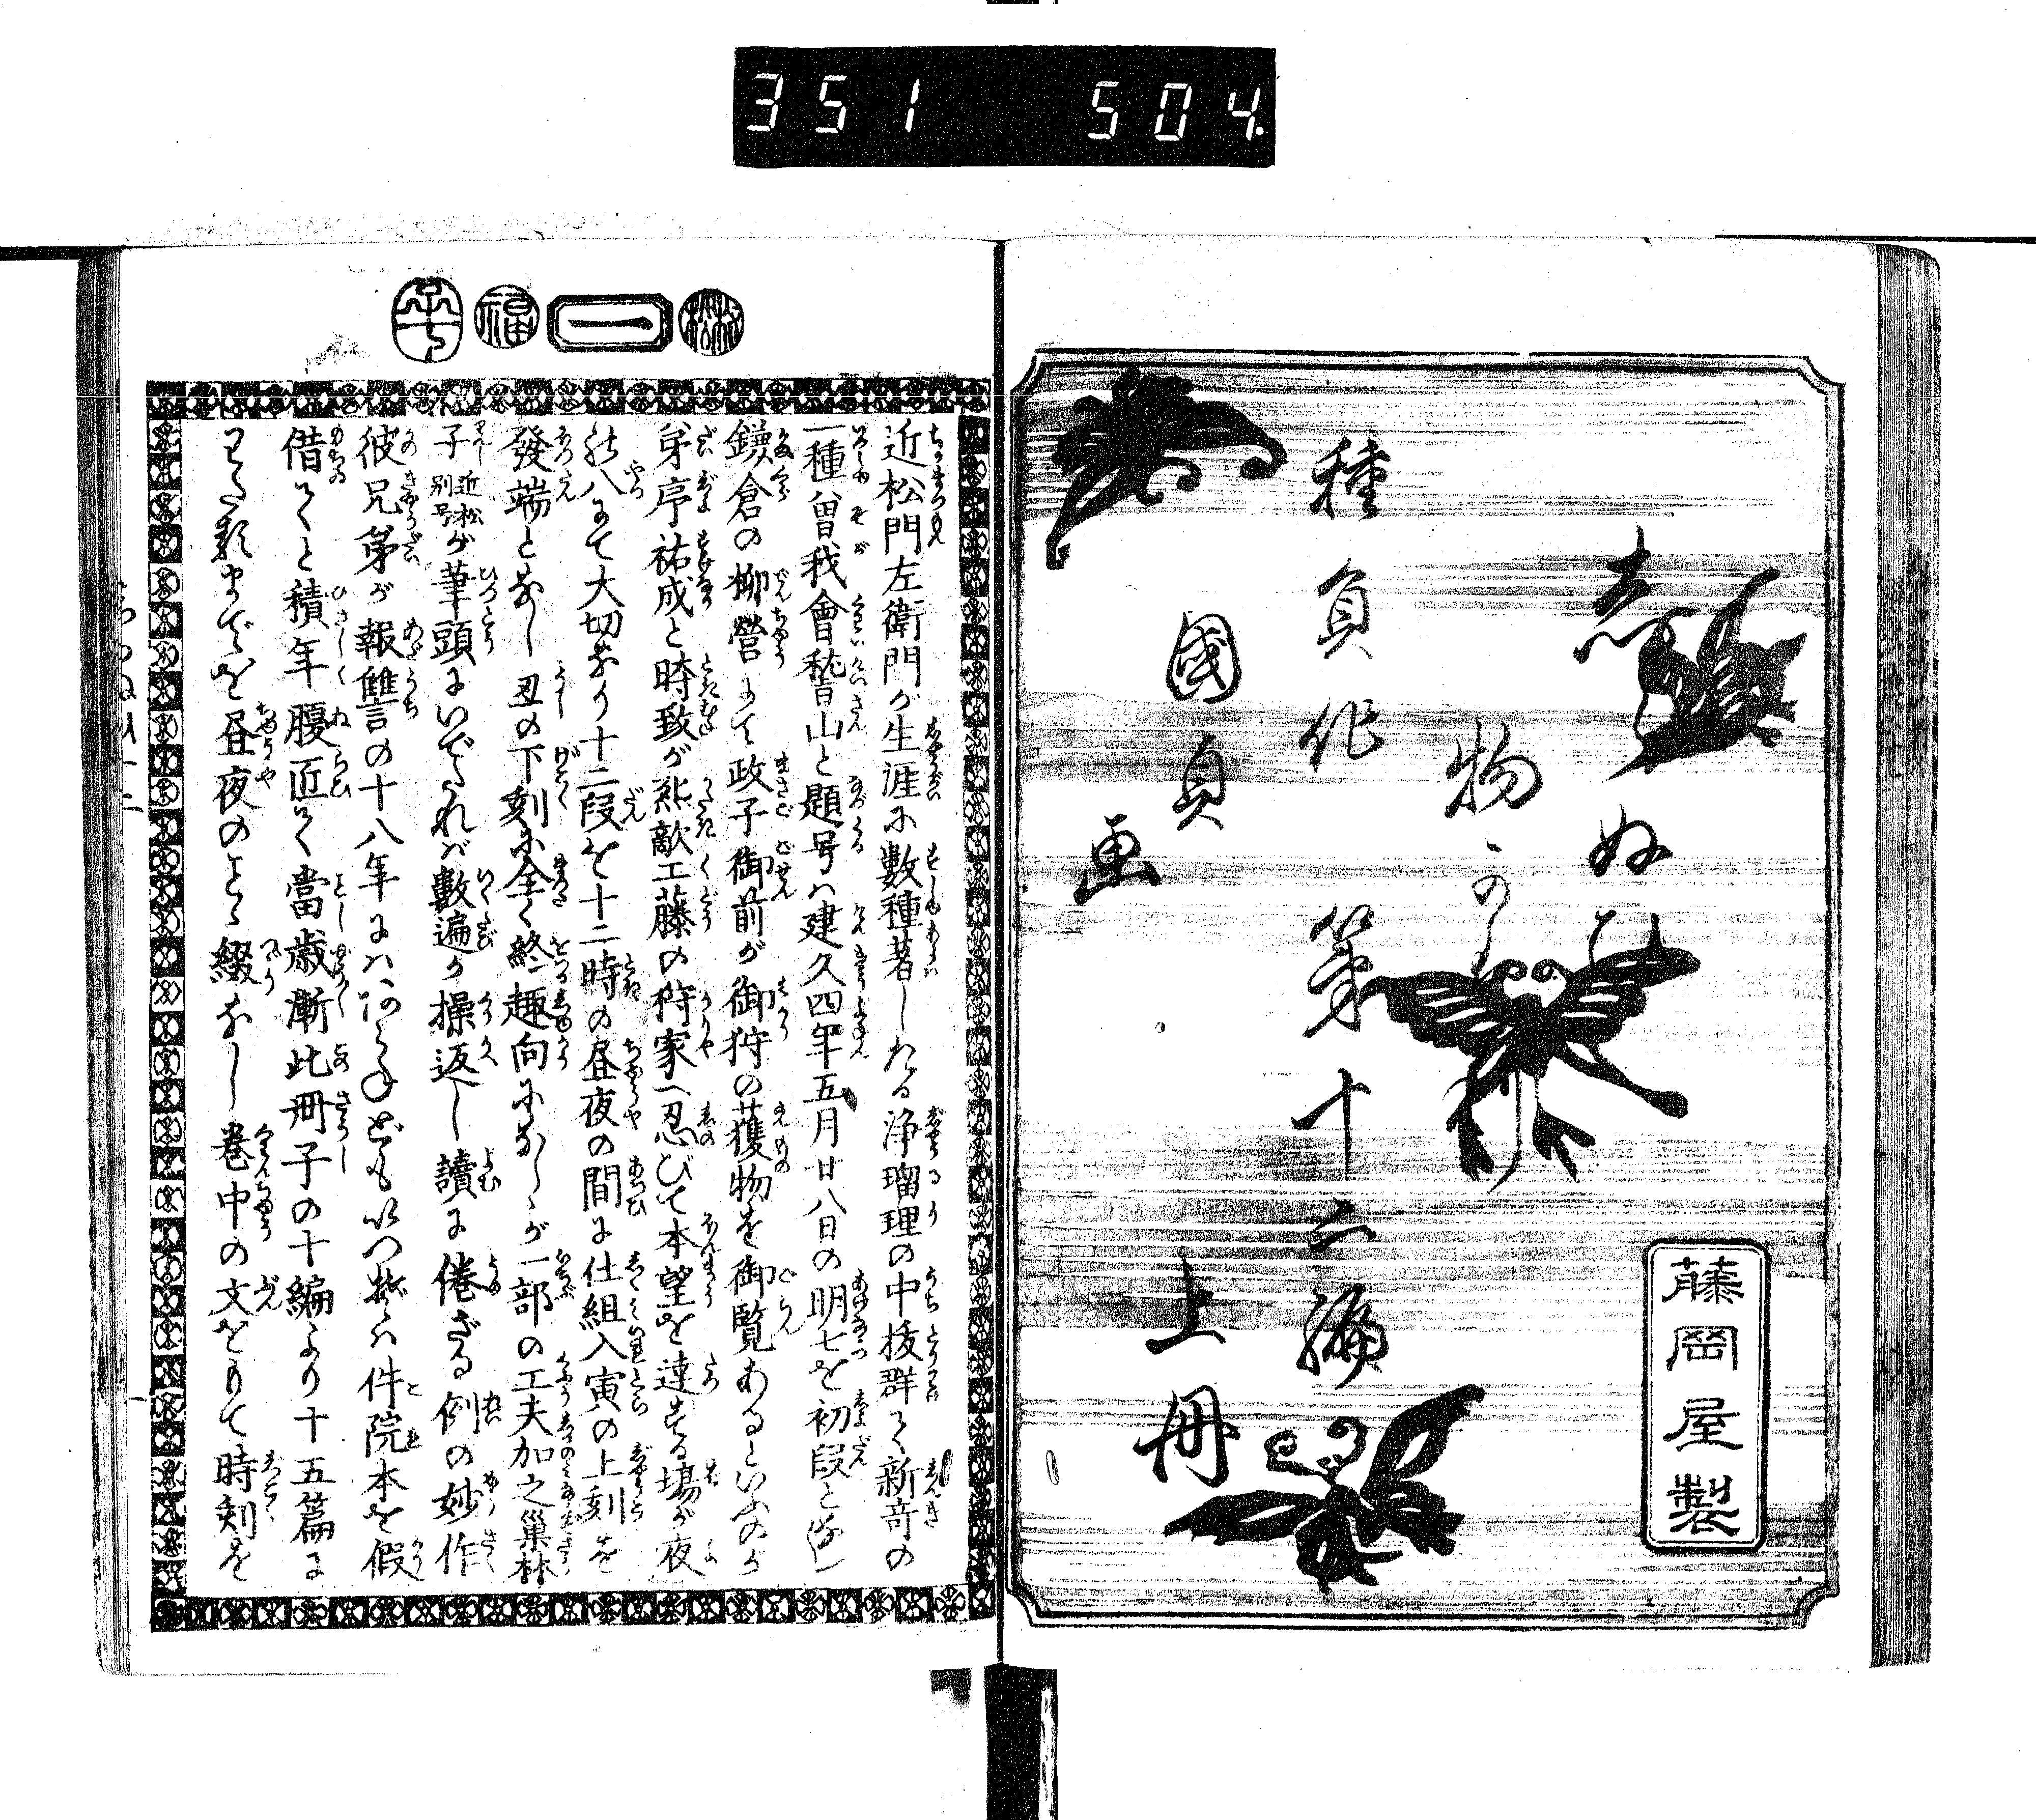 351 504
志らぬひ
物かたり
種員作
第十二編
國貞
画
上冊
藤岡屋製
松
一
福
平
近松門左衛門が生涯に數種著したる浄瑠理の中抜群て新奇の
一種曽我會稽山と題号ハ建久四年五月廿八日の明七を初段と為し
鎌倉の柳營にて政子御前が御狩の獲物を御覧あるといふのが
茅亭祐成と時致が敵工藤の狩家へ忍びて本望を達する場が夜
八にて大切なり十二段を十二時の昼夜の間に仕組入寅の上刻を
發端となし丑の下刻に全く終趣向になしゝが一部の工夫加之巣林
子近松別号が筆頭にいでたれバ數遍か操返し讀に倦ざる例の妙作
彼兄弟が報讐の十八年にハあらねども件院本を假
借て積年腰匠て當歳漸此冊子の十編より十五篇に
昼夜の綴なし巻中の文をもて時刻を